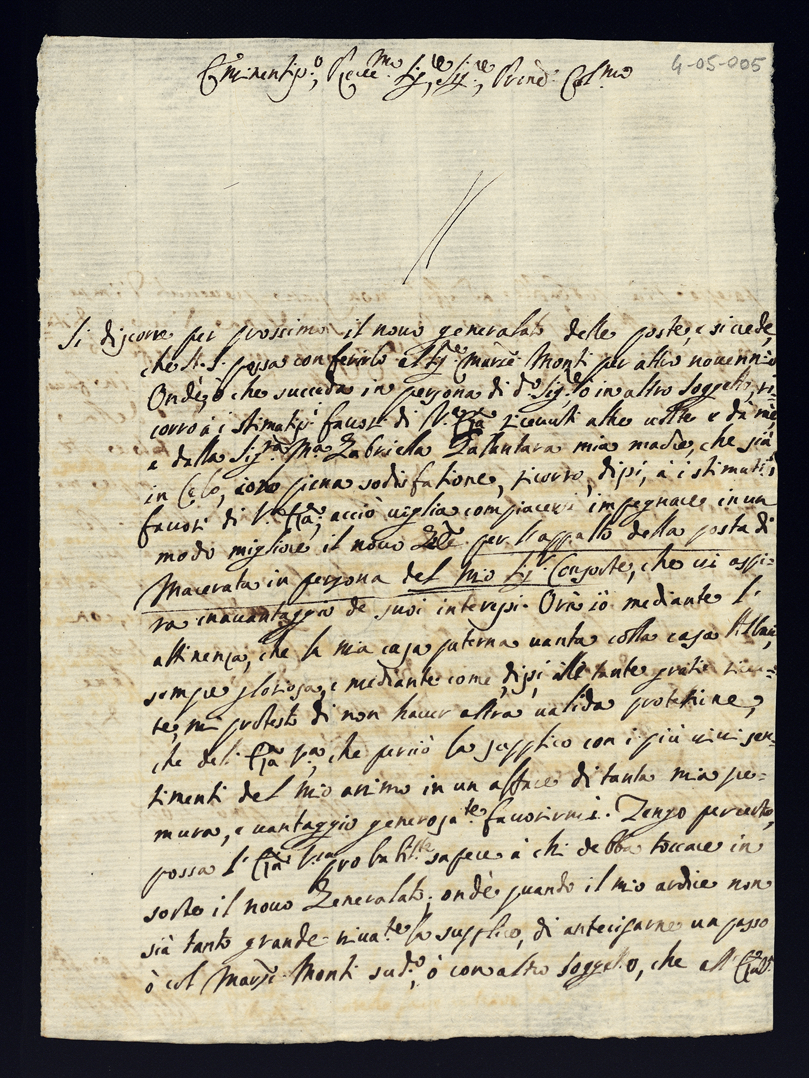 4-05-005
Eminentiss:º, Reve:mo Sig:re, Sig:re, Prinð: Col:mo
Si discorre per prossimo il novo generalato delle poste, e si crede,
che N. S. possa conferirlo al Sig:re March: Monti per altro novennio
Ond'è, ò che succeda in persona di dº Sig:re ò in altro soggetto, ri=
corro à i stimatis:i favori di V:ra ricevuti altre volte e da me,
e dalla Sig:ra Mª Gabriella mia madre, che sia
in Celo, con piena sodisfatione, ricorro, dissi, à i stimatis:i
favori di V:ra acciò voglia compiacersi impegnare in un
modo migliore il novo per l'appalto della posta di
Macerata in persona del mio Sig:r Consorte, che vi aspi=
ra in avantaggio de suoi interessi. Orà iò mediante l'
attinenza, che la mia casa paterna vanta colla casa Albani,
sempre gloriosa, e mediante come dissi, alle tante gratie ricevu=
te, mi protesto di non haver altra valida protetione,
che dell' Vra, che perciò la supplico con i più vivi sen=
timenti del mio animo in un affare di tanta mia pre=
mura, e vantaggio generosa:te favorirmi. Tengo per certo,
possa l' Vra probabil:te sapere à chi debba toccare in
sorte il novo Generalato, ond'è quando il mio ardire non
sia tanto grande riva:te la supplico, di antecigarne un passo
ò col March: Monti sudº, ò con altro soggetto, che all'